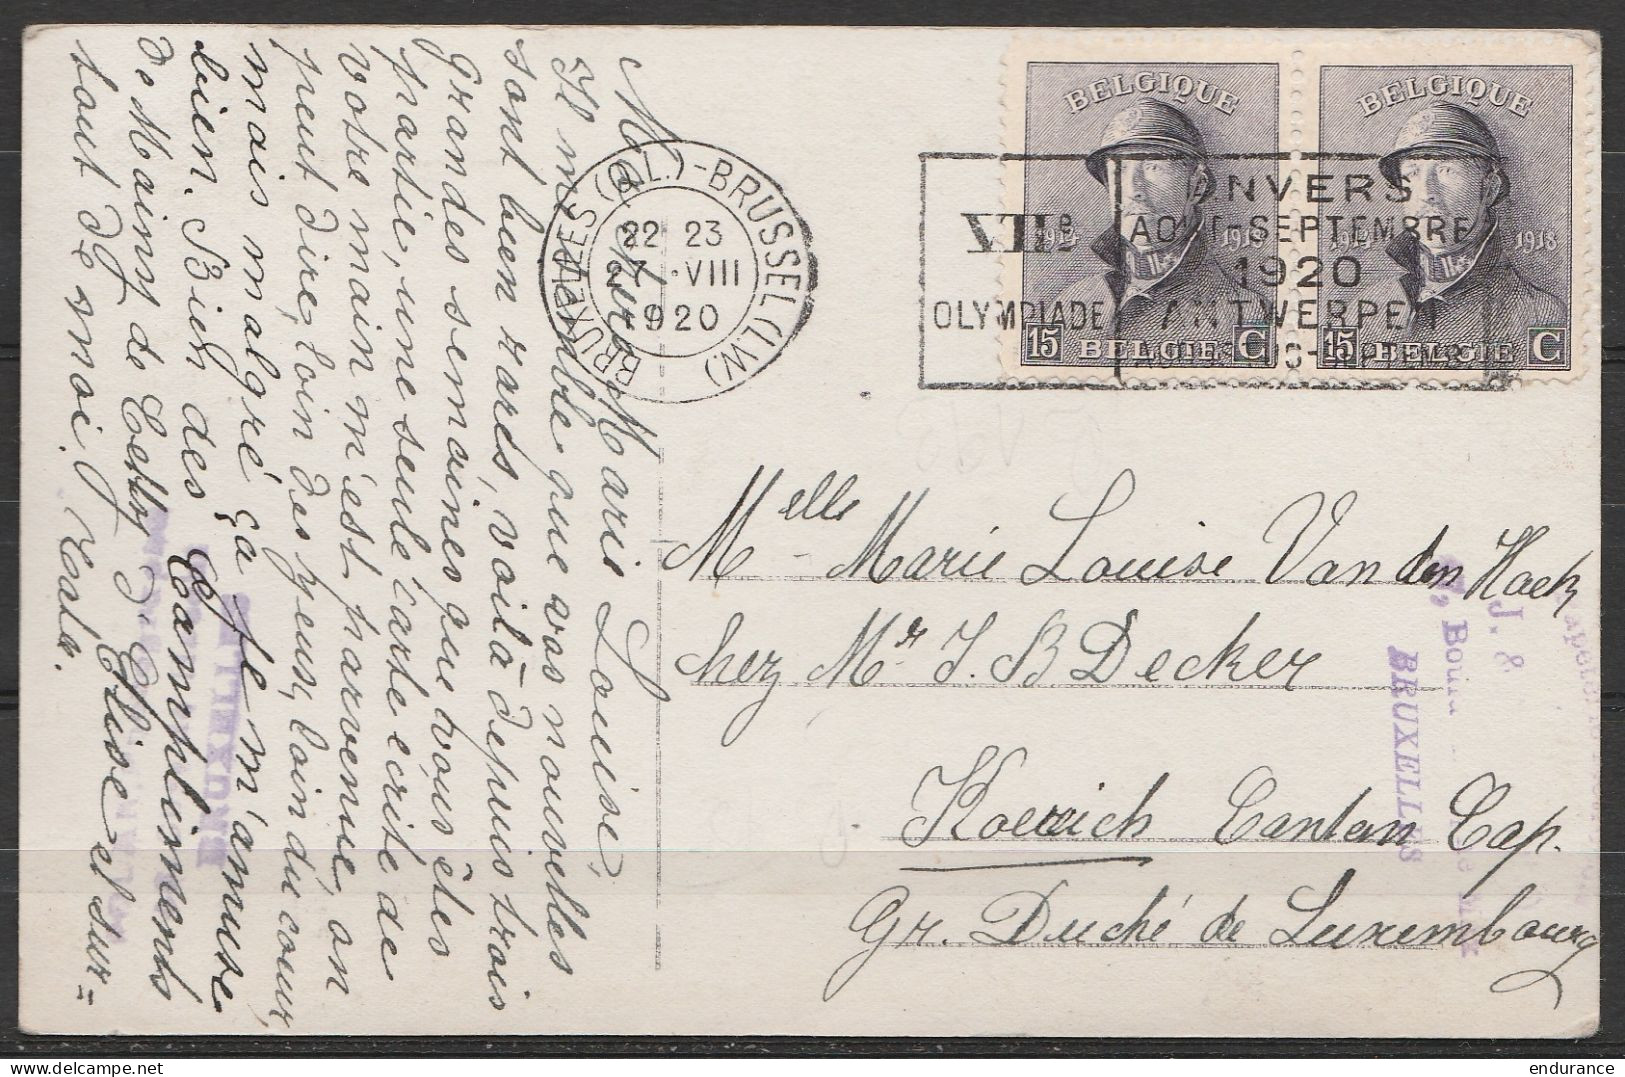 Ma chère Marie Louise,
Il me semble que vos nouvelles
sont bien rares, voilà depuis trois
grandes semaines que vous êtes
partie, une seule carte écrite de
votre main m'est parvenue, on
peut dire, loin des yeux, loin du cœur,
mais malgré ça je m'amuse
bien. Bien des compliments
de Maint, de Cathy, d'Elise et sur=
tout de moi.
BRUXELLES (Q.L.)-BRUSSEL (L.W.)
22 23
27 VIII
1920
VIIe
OLYMPIADE
ANVERS
AOUT-SEPTEMBRE
1920
ANTWERPEN
BELGIQUE
1914 1918
15 BELGIE C
BELGIQUE
1914 1918
15 BELGIE C
Melle Marie Louise Van den Hoek
chez Mr J. B Decker
Koerich Canton Cap.
Gr. Duché de Luxembourg
J. &
BRUXELLES